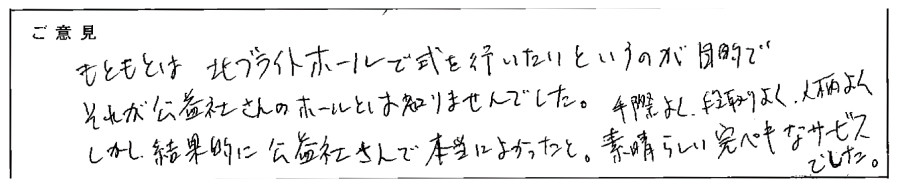 ご意見
もともとは 北ブライトホールで式を行いたいというのが目的で
それが公益社さんのホールとは知りませんでした。
しかし結果的に公益社さんで本当によかったと。
手際よく、段取りよく、人柄よく
素晴らしい完ペキなサービス
でした。